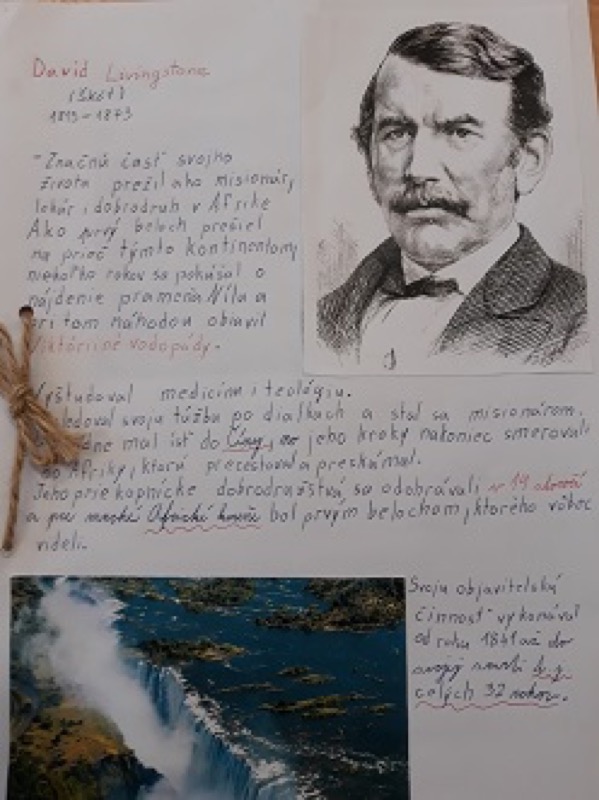 David Livingstone
(Škót)
1813 - 1873
"Značnú časť svojho
života prežil ako misionár,
lekár i dobrodruh v Afrike
Ako prvý beloch prešiel
na prieč týmto kontinentom,
niekoľko rokov sa pokúšal o
nájdenie prameňa Nílu a
pri tom náhodou objavil
Viktóriiné vodopády.
Vyštudoval medicínu i teológiu.
svoju túžbu po diaľkach a stal sa misionárom.
mal ísť do Číny, no jeho kroky nakoniec smerovali
do Afriky, ktorú precestoval a preskúmal.
Jeho priekopnícke dobrodružstvá sa odohrávali v 19 storočí
a pre mnohé Africké kmeňe bol prvým belochom, ktorého vôbec
videli.
Svoju objaviteľskú
činnosť vykonával
od roku 1841 až do
svojej smrti t.j.
celých 32 rokov.